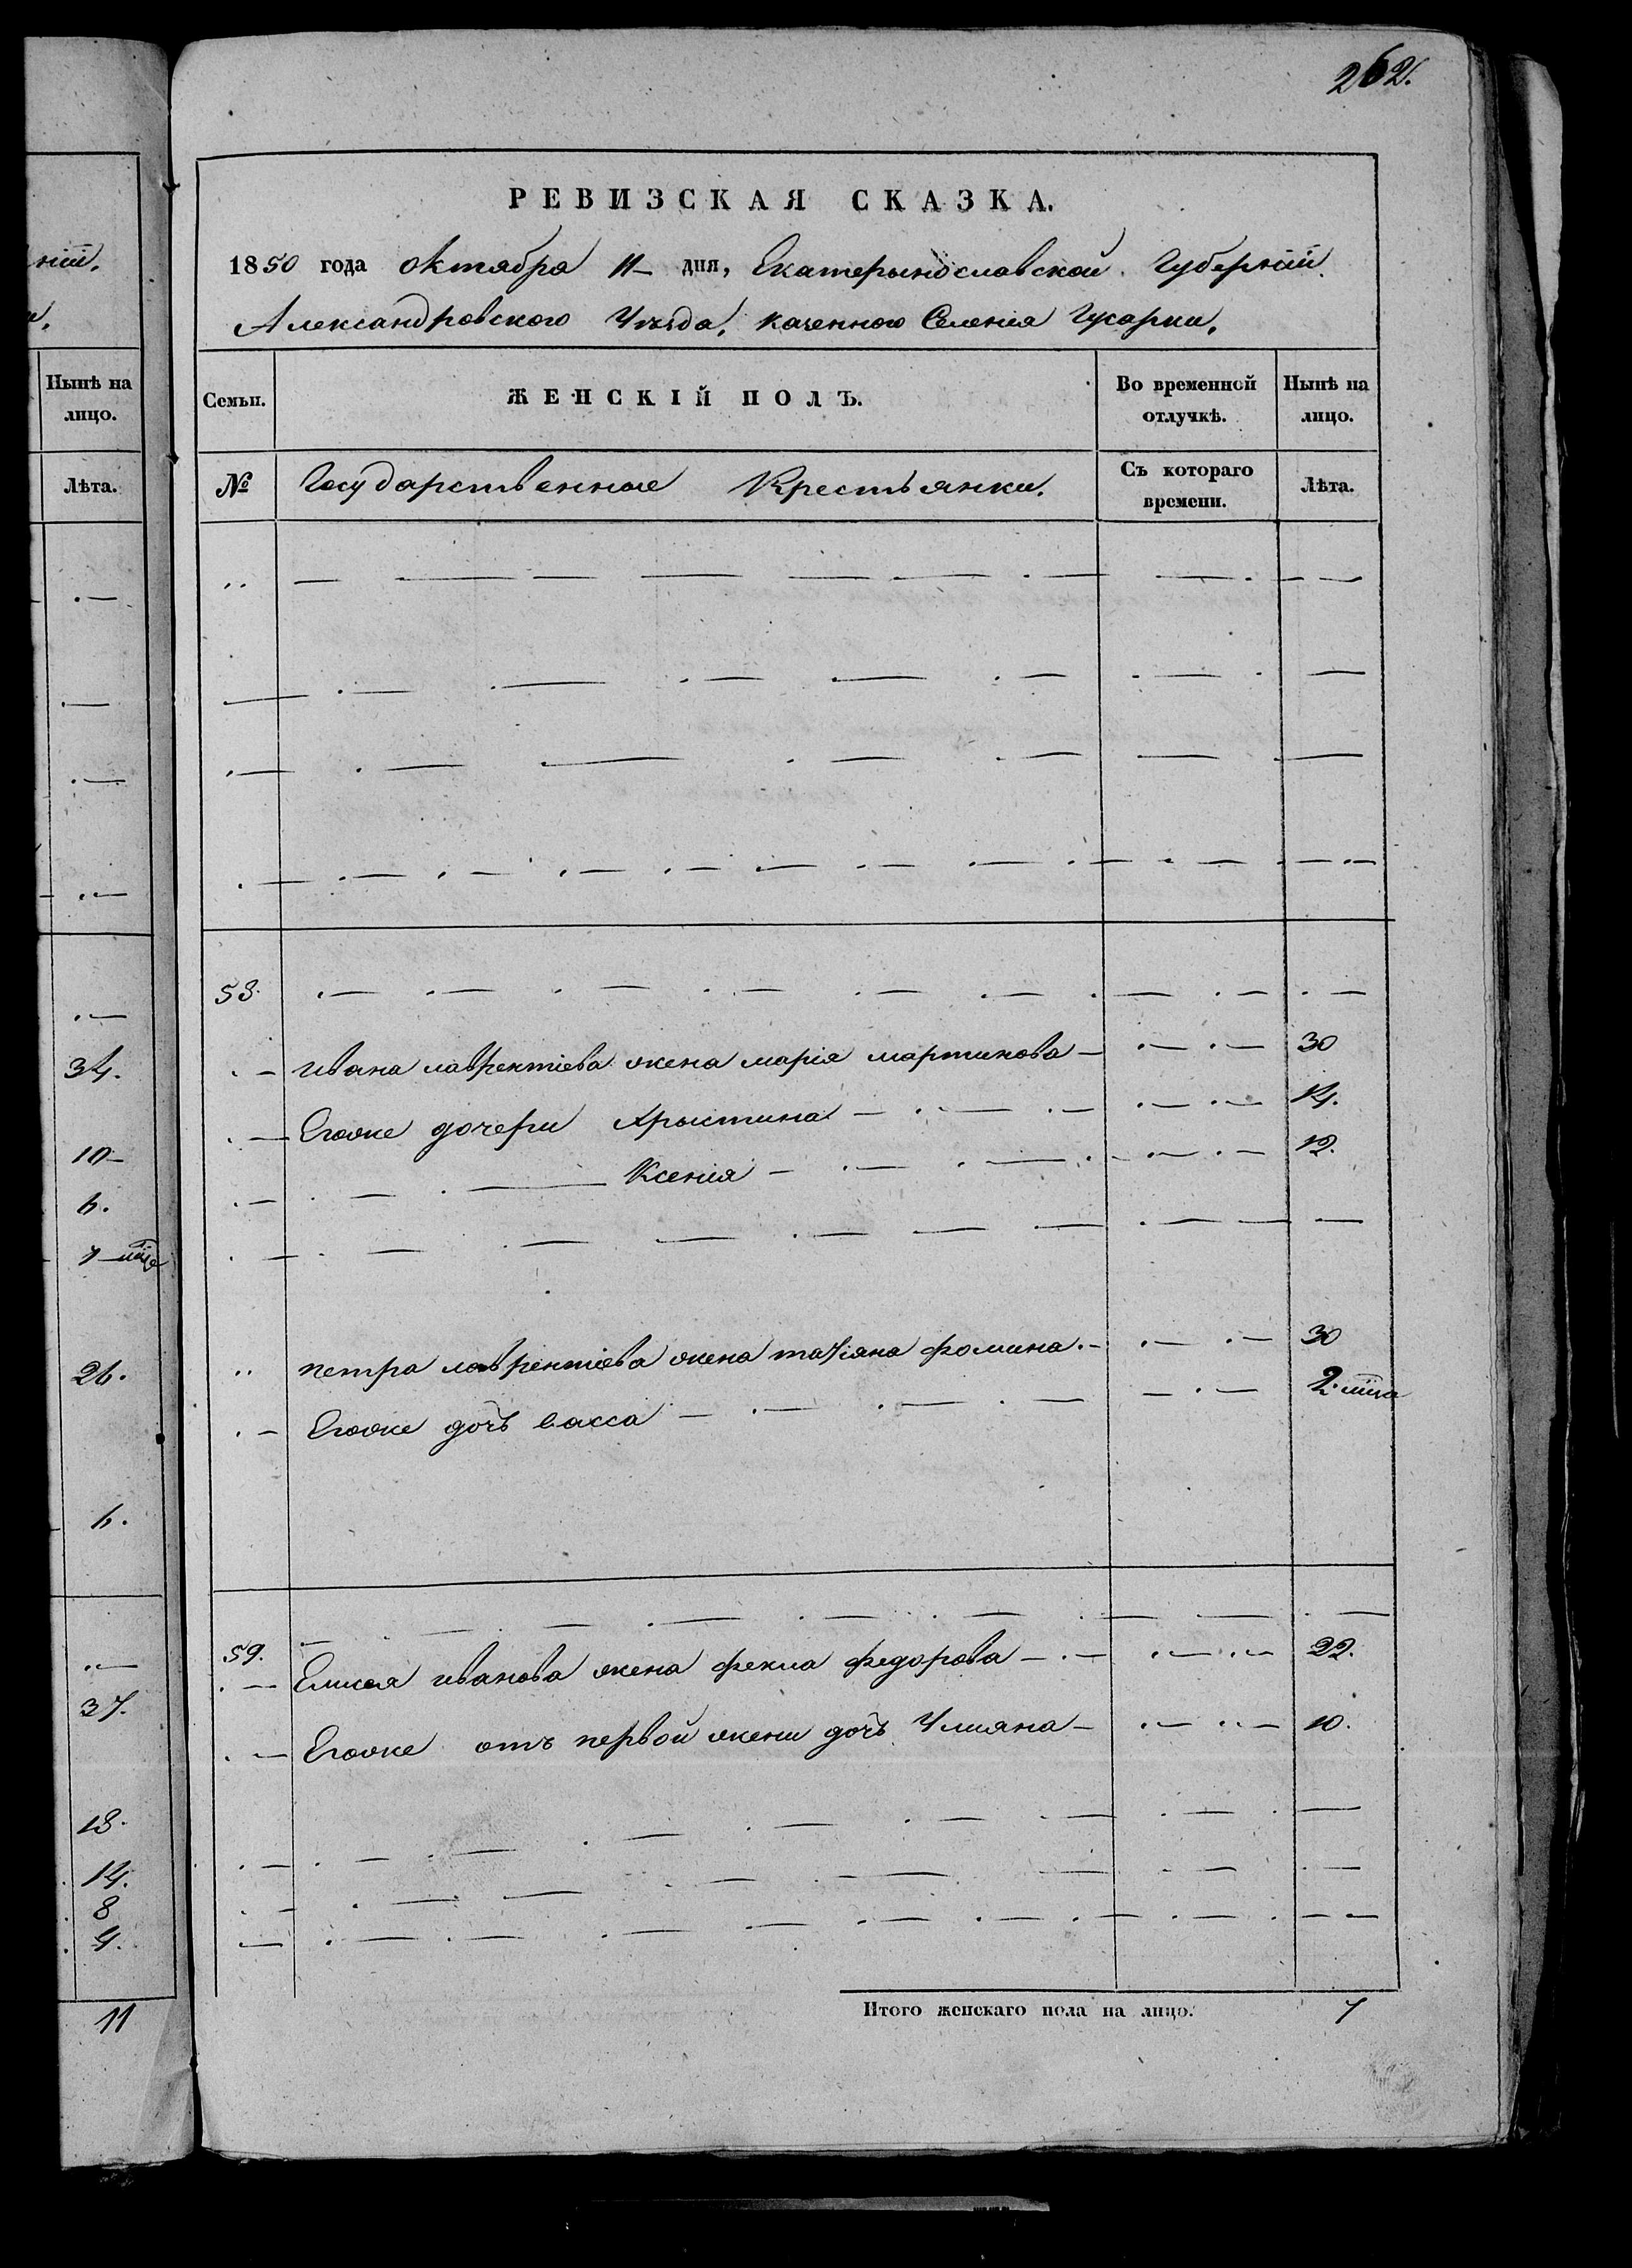 262.
РЕВИЗСКАЯ СКАЗКА.
1850 года октября 11 дня, Екатерынославской Губерніи
Александровского Уѣзда, казенного Селенія Гусарки.
Семьи.
ЖЕНСКІЙ ПОЛЪ.
Во временной отлучкѣ.
Нынѣ на лицо.
№
Государственные Крестьянки.
Съ котораго времени.
Лѣта.
58.
Ивана лаврентіева жена марія мартинова 30
Егоже дочери Хрыстина 14.
Ксенія 12.
петра лаврентіева жена татіяна фомина 30
Егоже дочь васса 2
59.
Елисея иванова жена фекла федорова 22.
Егоже отъ первой жени дочь Улияна 10.
Итого женскаго пола на лицо. 7
ніи.
Нынѣ на лицо.
Лѣта.
34.
10
6.
26.
6.
37.
18.
14.
8
4.
11